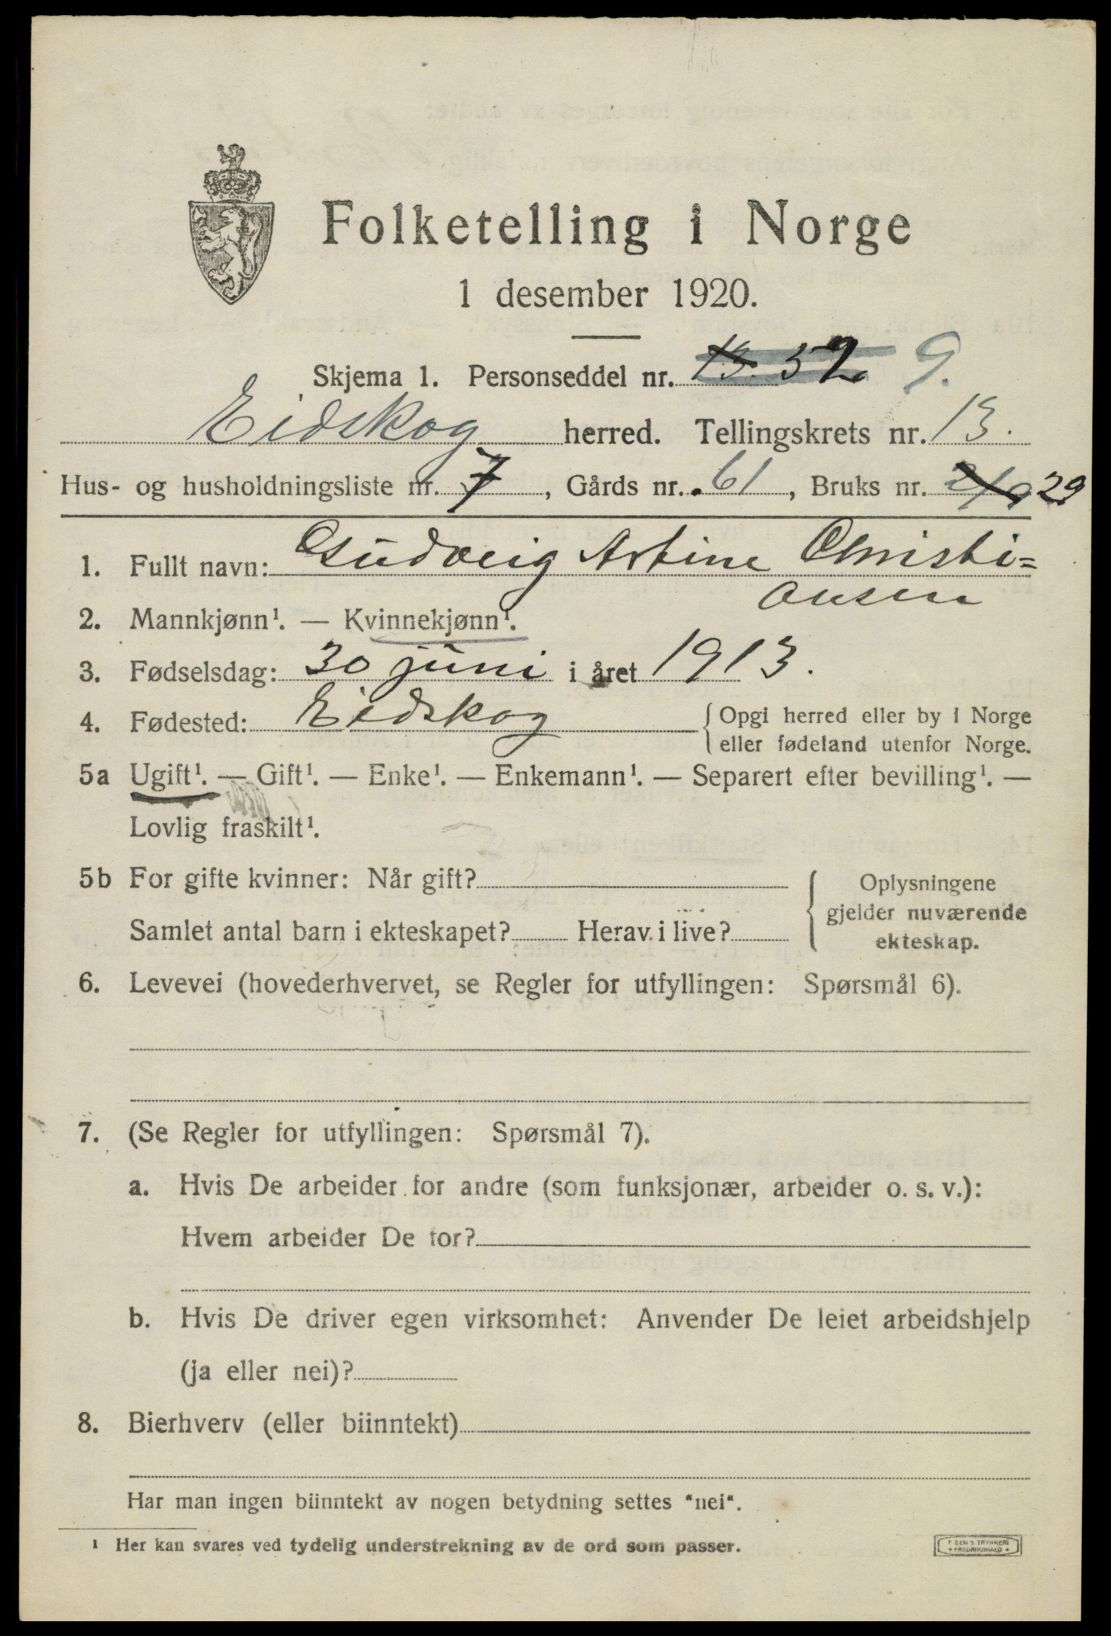 Folketelling i Norge
1 desember 1920.
Skjema 1. Personseddel nr. 13. 52 9.
Eidskog herred. Tellingskrets nr. 13.
Hus- og husholdningsliste nr. 7, Gårds nr. 61, Bruks nr. 29
1. Fullt navn: Gudveig Artine Christi=
ansen
2. Mannkjønn¹. — Kvinnekjønn¹.
3. Fødselsdag: 30 juni i året 1913.
4. Fødested: Eidskog
Opgi herred eller by i Norge
eller fødeland utenfor Norge.
5a Ugift¹. — Gift¹. — Enke¹. — Enkemann¹. — Separert efter bevilling¹. —
Lovlig fraskilt¹.
5b For gifte kvinner: Når gift?
Samlet antal barn i ekteskapet? Herav i live?
Oplysningene
gjelder nuværende
ekteskap.
6. Levevei (hovederhvervet, se Regler for utfyllingen: Spørsmål 6).
7. (Se Regler for utfyllingen: Spørsmål 7).
a. Hvis De arbeider for andre (som funksjonær, arbeider o. s. v.):
Hvem arbeider De for?
b. Hvis De driver egen virksomhet: Anvender De leiet arbeidshjelp
(ja eller nei)?
8. Bierhverv (eller biinntekt)
Har man ingen biinntekt av nogen betydning settes "nei".
¹ Her kan svares ved tydelig understrekning av de ord som passer.